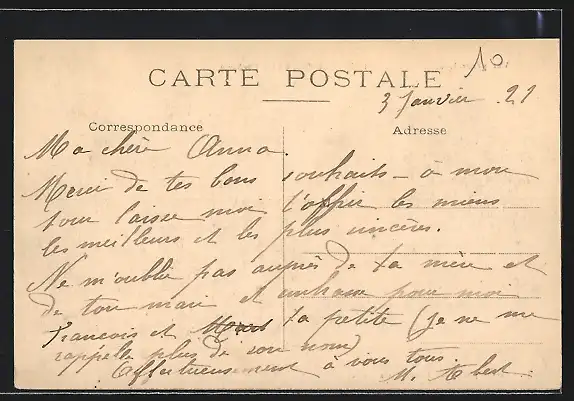 10.
CARTE POSTALE
3 Janvier . 21
Correspondance
Adresse
Ma chère Anna.
Merci de tes bons souhaits – à mon
tour laisse moi t'offrir les miens
les meilleurs et les plus sincères.
Ne m'oublie pas auprès de ta mère et
de ton mari et embrasse pour moi
François et ta petite (je ne me
rappelle plus de son nom)
Affectueusement à vous tous.
M.